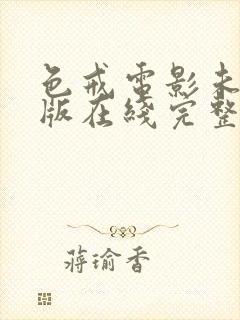 色戒电影未
版在线完整
蒋瑜香